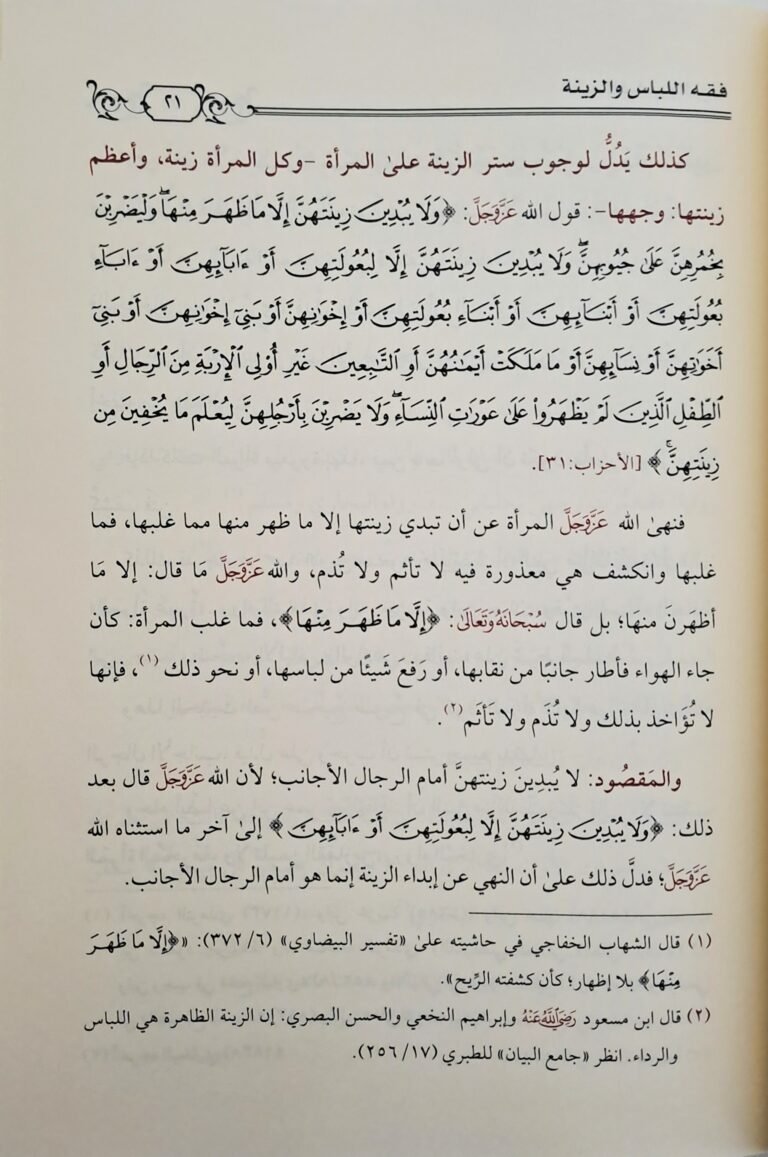 فقه اللباس والزينة
٢١
كذلك يَدُلُّ لوجوب ستر الزينة علىٰ المرأة -وكل المرأة زينة، وأعظم
زينتها: وجهها-: قول الله عَزَّوَجَلَّ: ﴿وَلَا يُبْدِينَ زِينَتَهُنَّ إِلَّا مَا ظَهَرَ مِنْهَا ۖ وَلْيَضْرِبْنَ
بِخُمُرِهِنَّ عَلَىٰ جُيُوبِهِنَّ ۖ وَلَا يُبْدِينَ زِينَتَهُنَّ إِلَّا لِبُعُولَتِهِنَّ أَوْ ءَابَآئِهِنَّ أَوْ ءَابَآءِ
بُعُولَتِهِنَّ أَوْ أَبْنَآئِهِنَّ أَوْ أَبْنَآءِ بُعُولَتِهِنَّ أَوْ إِخْوَٰنِهِنَّ أَوْ بَنِىٓ إِخْوَٰنِهِنَّ أَوْ بَنِىٓ
أَخَوَٰتِهِنَّ أَوْ نِسَآئِهِنَّ أَوْ مَا مَلَكَتْ أَيْمَٰنُهُنَّ أَوِ ٱلتَّٰبِعِينَ غَيْرِ أُو۟لِى ٱلْإِرْبَةِ مِنَ ٱلرِّجَالِ أَوِ
ٱلطِّفْلِ ٱلَّذِينَ لَمْ يَظْهَرُوا۟ عَلَىٰ عَوْرَٰتِ ٱلنِّسَآءِ ۖ وَلَا يَضْرِبْنَ بِأَرْجُلِهِنَّ لِيُعْلَمَ مَا يُخْفِينَ مِن
زِينَتِهِنَّ ۚ﴾ [الأحزاب:٣١].
فنهىٰ الله عَزَّوَجَلَّ المرأة عن أن تبدي زينتها إلا ما ظهر منها مما غلبها، فما
غلبها وانكشف هي معذورة فيه لا تأثم ولا تُذم، والله عَزَّوَجَلَّ مَا قال: إلا مَا
أظهَرنَ منهَا؛ بل قال سُبْحَانَهُ وَتَعَالَىٰ: ﴿إِلَّا مَا ظَهَرَ مِنْهَا﴾، فما غلب المرأة: كأن
جاء الهواء فأطار جانبًا من نقابها، أو رَفعَ شَيئًا من لباسها، أو نحو ذلك (١)، فإنها
لا تُؤَاخذ بذلك ولا تُذَم ولا تَأثَم(٢).
والمَقصُود: لا يُبدِينَ زينتهنَّ أمام الرجال الأجانب؛ لأن الله عَزَّوَجَلَّ قال بعد
ذلك: ﴿وَلَا يُبْدِينَ زِينَتَهُنَّ إِلَّا لِبُعُولَتِهِنَّ أَوْ ءَابَآئِهِنَّ﴾ إلىٰ آخر ما استثناه الله
عَزَّوَجَلَّ؛ فدلَّ ذلك علىٰ أن النهي عن إبداء الزينة إنما هو أمام الرجال الأجانب.
(١) قال الشهاب الخفاجي في حاشيته علىٰ «تفسير البيضاوي» (٦/ ٣٧٢): «﴿إِلَّا مَا ظَهَرَ
مِنْهَا﴾ بلا إظهار؛ كأن كشفته الرِّيح».
(٢) قال ابن مسعود رَضِيَ اللَّهُ عَنْهُ وإبراهيم النخعي والحسن البصري: إن الزينة الظاهرة هي اللباس
والرداء. انظر «جامع البيان» للطبري (١٧/ ٢٥٦).